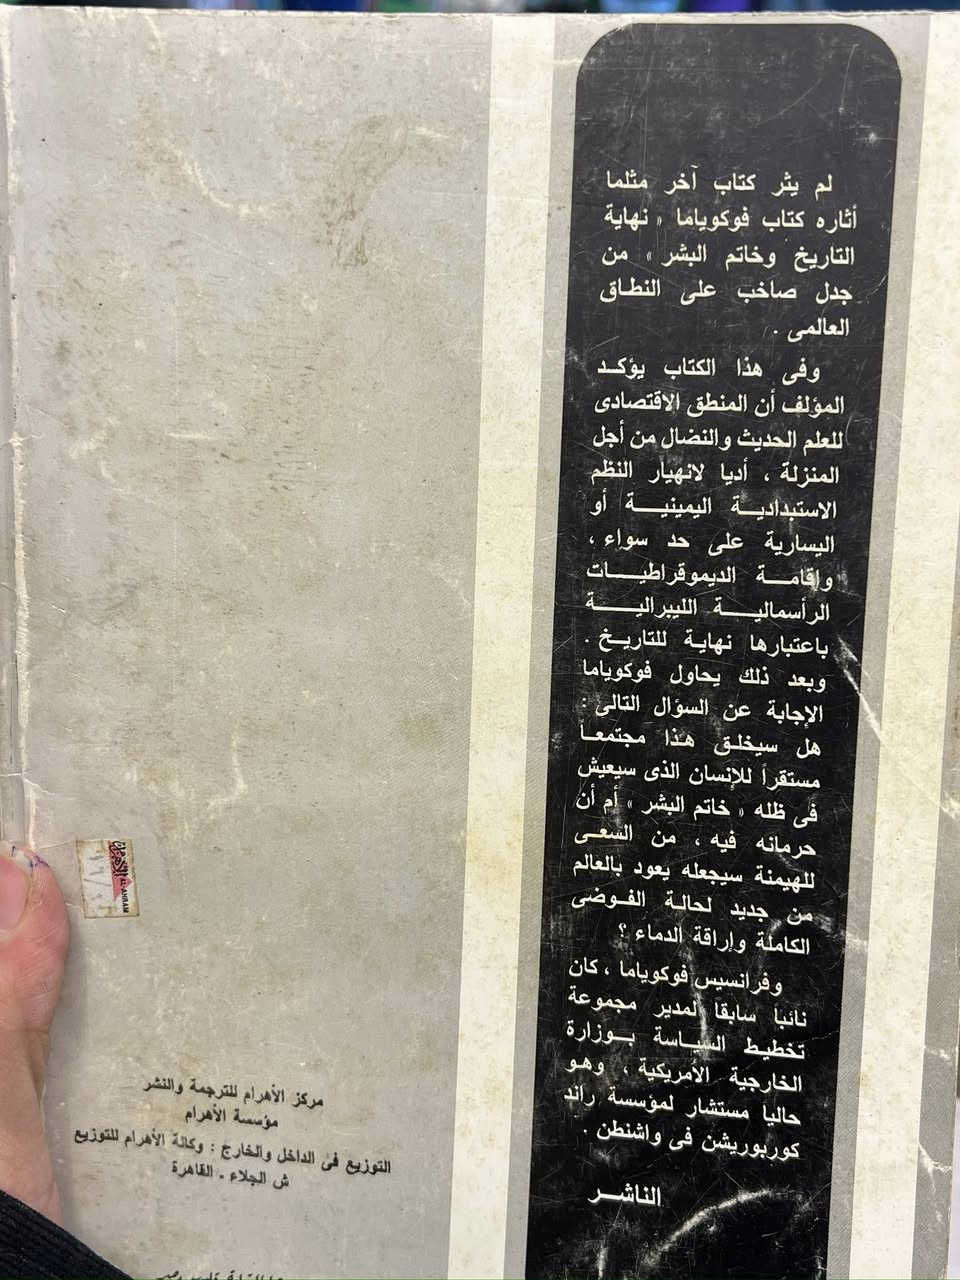 لم يثر كتاب آخر مثلما
أثاره كتاب فوكوياما « نهاية
التاريخ وخاتم البشر » من
جدل صاخب على النطاق
العالمى .
وفى هذا الكتاب يؤكد
المؤلف أن المنطق الاقتصادى
للعلم الحديث والنضال من أجل
المنزلة ، أديا لانهيار النظم
الاستبدادية اليمينية أو
اليسارية على حد سواء ،
وإقامة الديموقراطيات
الرأسمالية الليبرالية
باعتبارها نهاية للتاريخ .
وبعد ذلك يحاول فوكوياما
الإجابة عن السؤال التالى :
هل سيخلق هذا مجتمعاً
مستقراً للإنسان الذى سيعيش
فى ظله « خاتم البشر » أم أن
حرمانه فيه ، من السعى
للهيمنة سيجعله يعود بالعالم
من جديد لحالة الفوضى
الكاملة وإراقة الدماء ؟
وفرانسيس فوكوياما ، كان
نائبا سابقا لمدير مجموعة
تخطيط السياسة بوزارة
الخارجية الأمريكية ، وهو
حاليا مستشار لمؤسسة راند
كوربوريشن فى واشنطن .
الناشر
الأهرام
AL-AHRAM
مركز الأهرام للترجمة والنشر
مؤسسة الأهرام
التوزيع فى الداخل والخارج : وكالة الأهرام للتوزيع
ش الجلاء ـ القاهرة